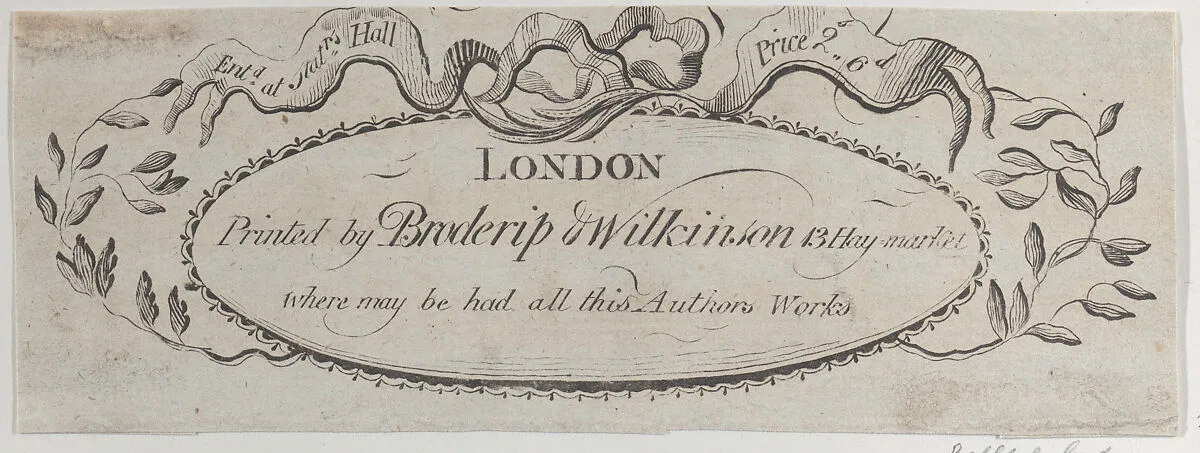 Ent.d at Stat.rs Hall
Price 2s,, 6d
LONDON
Printed by Broderip & Wilkinson 13 Hay-market
where may be had all this Authors Works